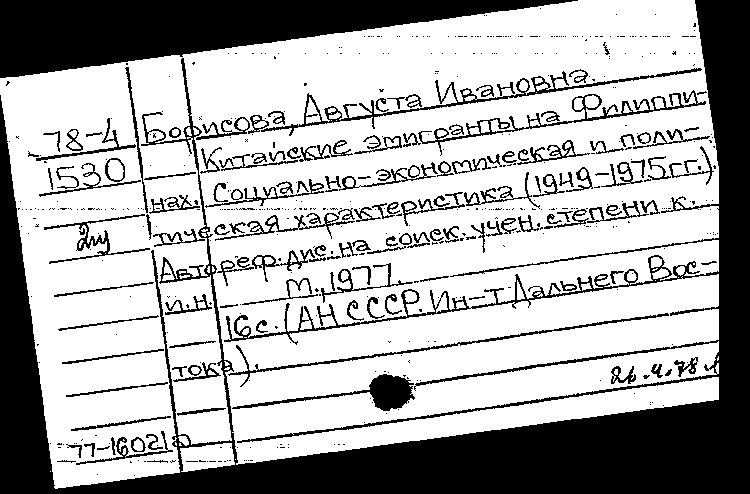 78-4 Борисова, Августа Ивановна.
1530 Китайские эмигранты на Филиппи-
нах. Социально-экономическая и поли-
тическая характеристика (1949-1975гг.).
Автореф. дис. на соиск. учен. степени к.
и.н. М., 1977.
16с. (АН СССР. Ин-т Дальнего Вос-
тока).
26.4.78.
77-16021а